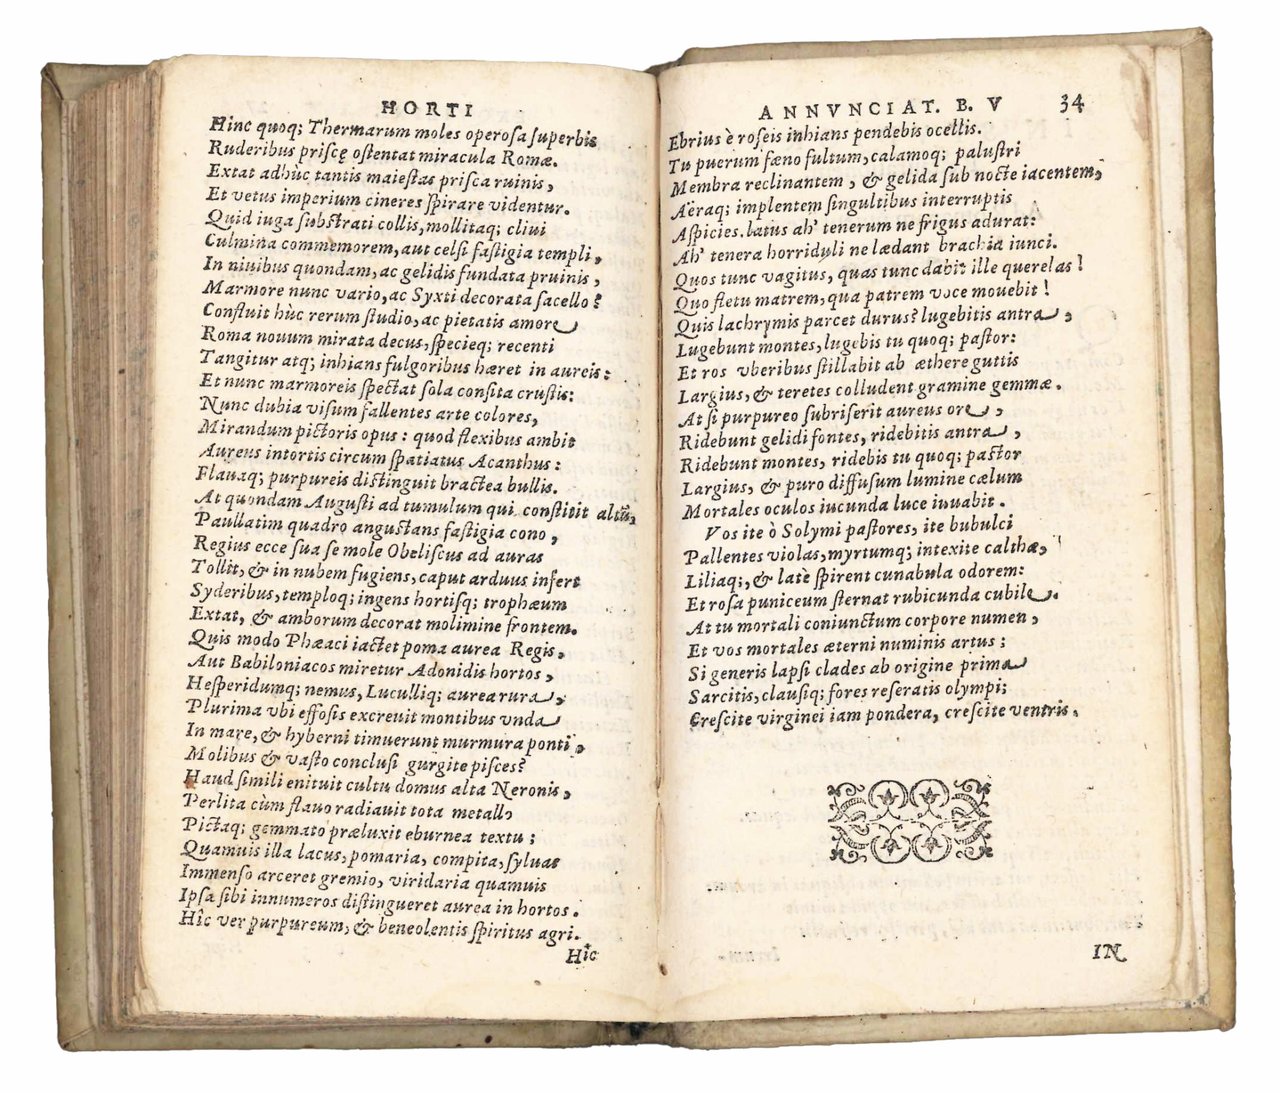 HORTI
Hinc quoq; Thermarum moles operosa superbis
Ruderibus priscę ostentat miracula Romæ.
Extat adhùc tantis maiestas prisca ruinis,
Et vetus imperium cineres spirare videntur.
Quid iuga substrati collis, mollitaq; cliui
Culmina commemorem, aut celsi fastigia templi,
In niuibus quondam, ac gelidis fundata pruinis,
Marmore nunc vario, ac Syxti decorata sacello?
Confluit hùc rerum studio, ac pietatis amore
Roma nouum mirata decus, specieq; recenti
Tangitur atq; inhians fulgoribus hæret in aureis:
Et nunc marmoreis spectat sola consita crustis:
Nunc dubia visum fallentes arte colores,
Mirandum pictoris opus: quod flexibus ambit
Aureus intortis circum spatiatus Acanthus:
Flauaq; purpureis distinguit bractea bullis.
At quondam Augusti ad tumulum qui constitit altũ,
Paullatim quadro angustans fastigia cono,
Regius ecce sua se mole Obeliscus ad auras
Tollit, & in nubem fugiens, caput arduus infert
Syderibus, temploq; ingens hortisq; trophæum
Extat, & amborum decorat molimine frontem.
Quis modo Phæaci iactet poma aurea Regis,
Aut Babiloniacos miretur Adonidis hortos,
Hesperidumq; nemus, Luculliq; aurea rura,
Plurima vbi effosis excreuit montibus vnda
In mare, & hyberni timuerunt murmura ponti,
Molibus & vasto conclusi gurgite pisces?
Haud simili enituit cultu domus alta Neronis,
Perlita cùm flauo radiauit tota metallo
Pictaq; gemmato præluxit eburnea textu;
Quamuis illa lacus, pomaria, compita, syluas
Immenso arceret gremio, viridaria quamuis
Ipsa sibi innumeros distingueret aurea in hortos.
Hîc ver purpureum, & beneolentis spiritus agri.
Hîc
ANNVNCIAT. B. V 34
Ebrius è roseis inhians pendebis ocellis.
Tu puerum fœno fultum, calamoq; palustri
Membra reclinantem, & gelida sub nocte iacentem,
Aëraq; implentem singultibus interruptis
Aspicies. latus ah' tenerum ne frigus adurat:
Ah' tenera horriduli ne lædant brachia iunci.
Quos tunc vagitus, quas tunc dabit ille querelas!
Quo fletu matrem, qua patrem voce mouebit!
Quis lachrymis parcet durus? lugebitis antra,
Lugebunt montes, lugebis tu quoq; pastor:
Et ros vberibus stillabit ab æthere guttis
Largius, & teretes colludent gramine gemmæ.
At si purpureo subriserit aureus ore,
Ridebunt gelidi fontes, ridebitis antra,
Ridebunt montes, ridebis tu quoq; pastor
Largius, & puro diffusum lumine cælum
Mortales oculos iucunda luce iuuabit.
Vos ite ò Solymi pastores, ite bubulci
Pallentes violas, myrtumq; intexite calthæ,
Liliaq;, & latè spirent cunabula odorem:
Et rosa puniceum sternat rubicunda cubile.
At tu mortali coniunctum corpore numen,
Et vos mortales æterni numinis artus;
Si generis lapsi clades ab origine prima
Sarcitis, clausiq; fores reseratis olympi;
Crescite virginei iam pondera, crescite ventris.
IN